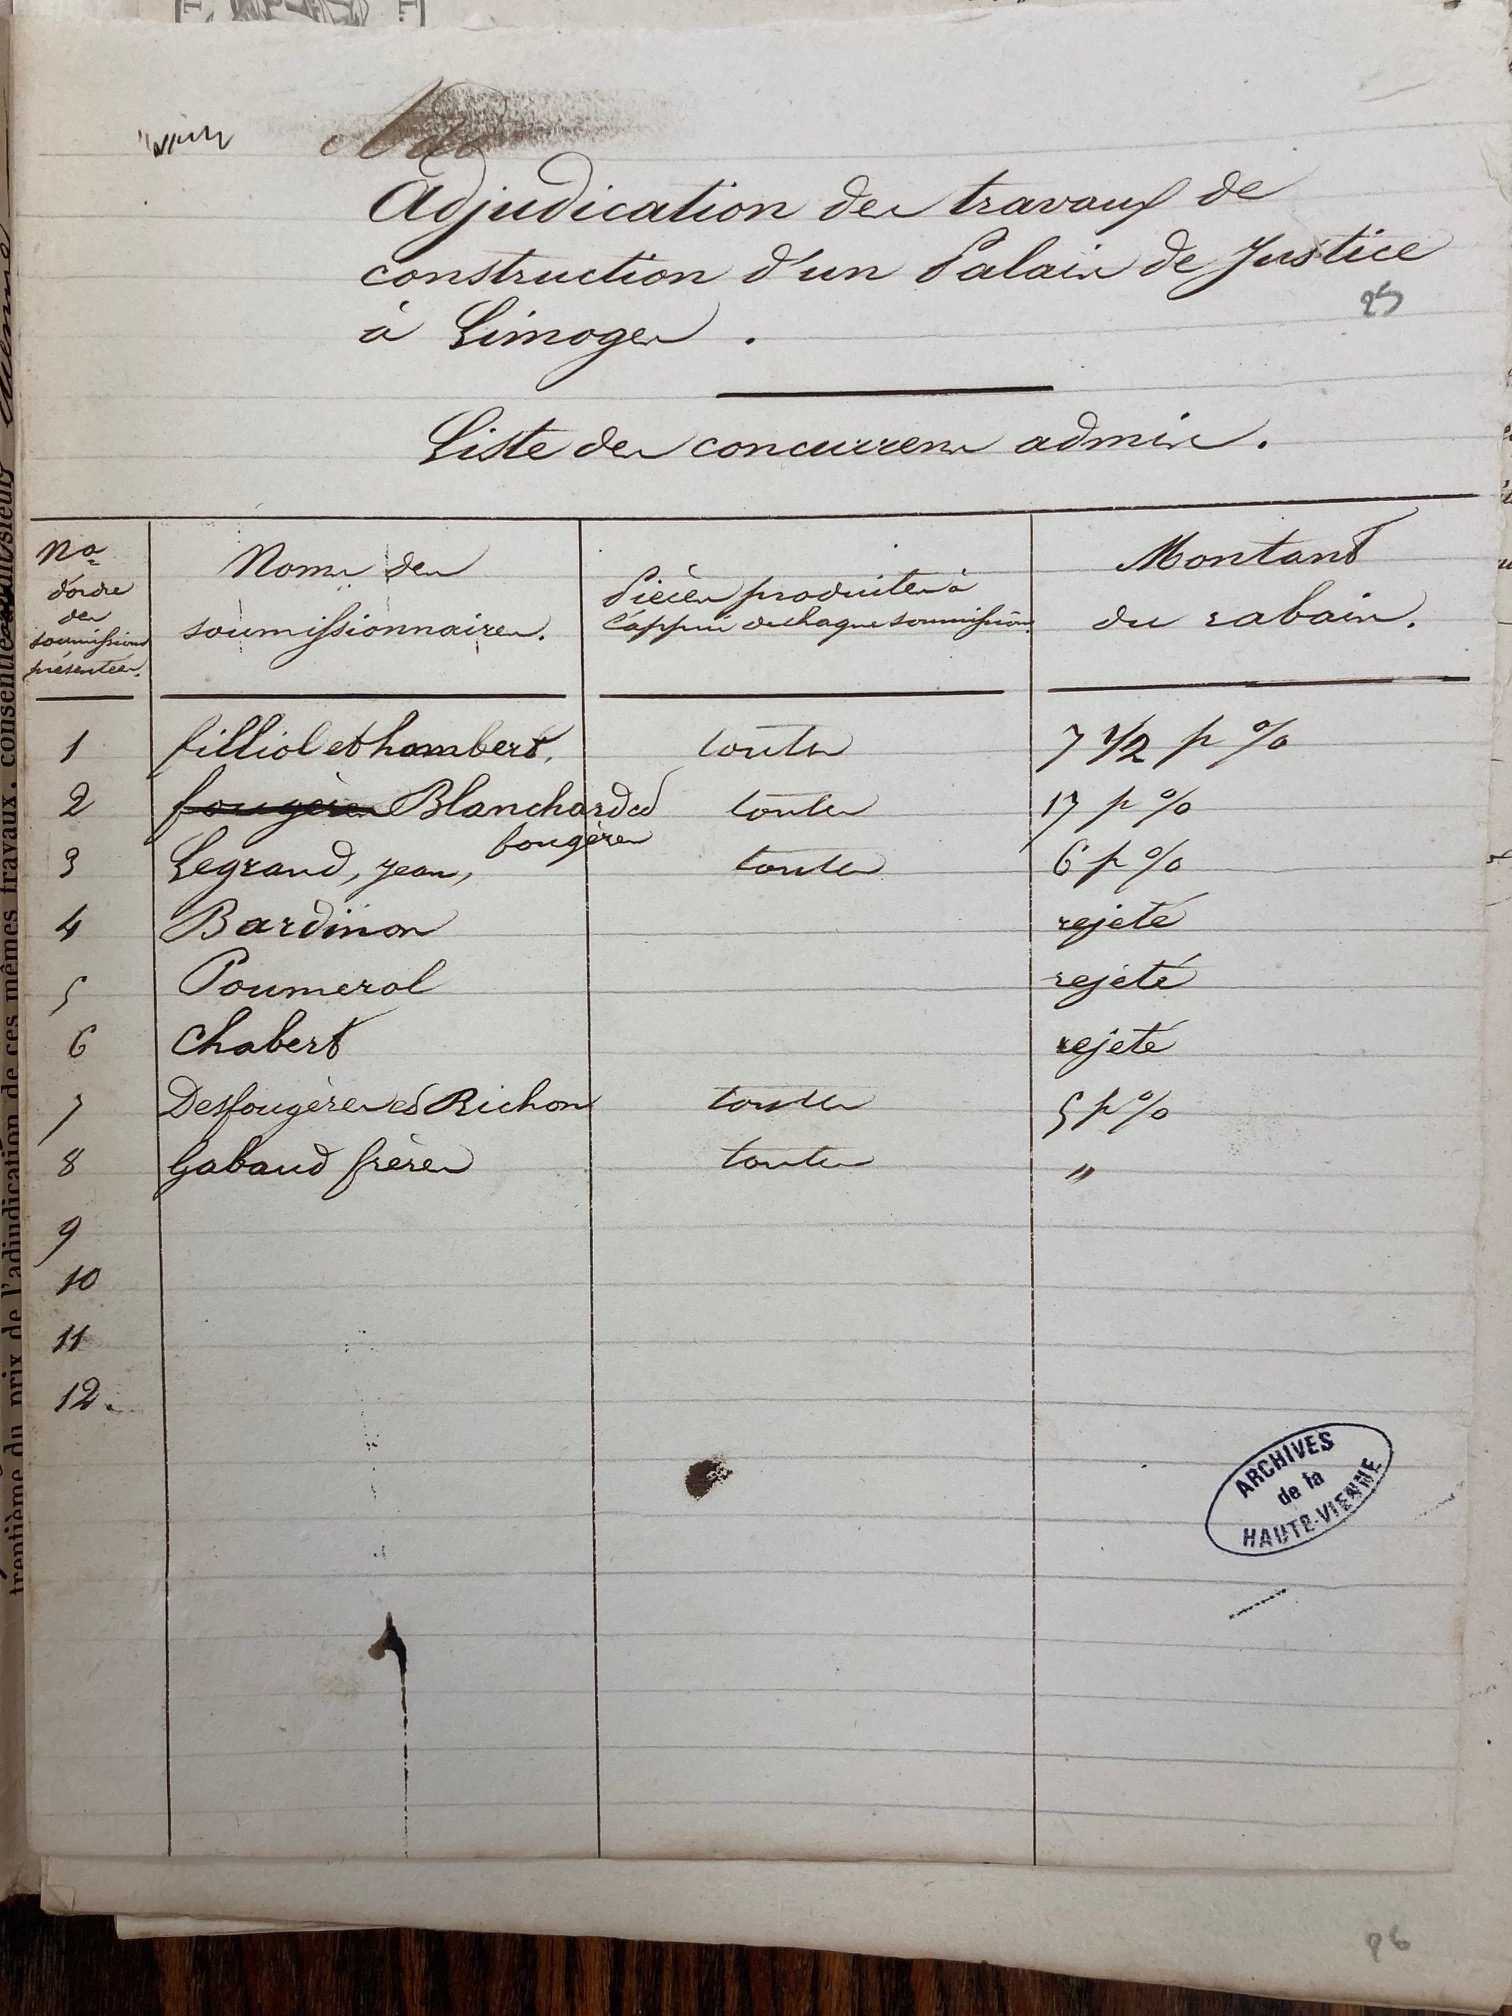 Adjudication des travaux de
construction d'un Palais de Justice
à Limoges.
25
Liste des concurrens admis.
Nos d'ordre des soumissions présentées.
Noms des soumissionnaires.
Pièces produites à l'appui de chaque soumission.
Montant du rabais.
1 filliol et hambert. toutes 7 1/2 p %
2 fougères Blanchard et fougères toutes 17 p %
3 Legrand, jean, toutes 6 p %
4 Bardinon rejeté
5 Poumerol rejeté
6 Chabert rejeté
7 Desfougères et Richon toutes 5 p %
8 Gabaud frères toutes "
9
10
11
12.
ARCHIVES
de la
HAUTE-VIENNE
trentième du prix de l'adjudication de ces mêmes travaux, consentie